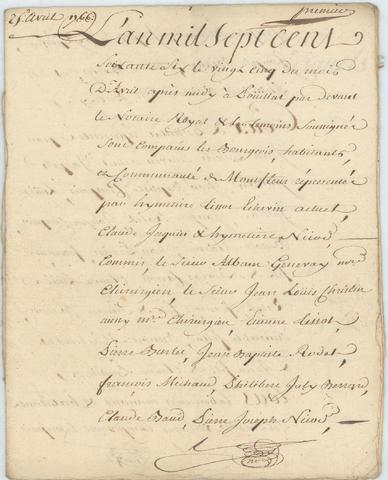 25 Avril 1766
premiere
L'an mil Sept Cent
soixante Six le vingt cinq du mois
D'Avril après midy à Poüillat par devant
le Notaire Royal & les temoins Soussignés
Sont Comparus les Bourgeois, habitants,
et Communauté de Montfleur représentés
par hymetiere Echevin actuel,
Claude Jaquin & hymetiere Nicod,
Commis, le Sieur Alban Genevay mre
Chirurgien, le Sieur Jean Louis Christin
aussy mre Chirurgien, Etienne
Pierre Jean Baptiste Rodet,
françois Michaud, Philibert Juby
Claude Baud, Pierre Joseph Nicod,